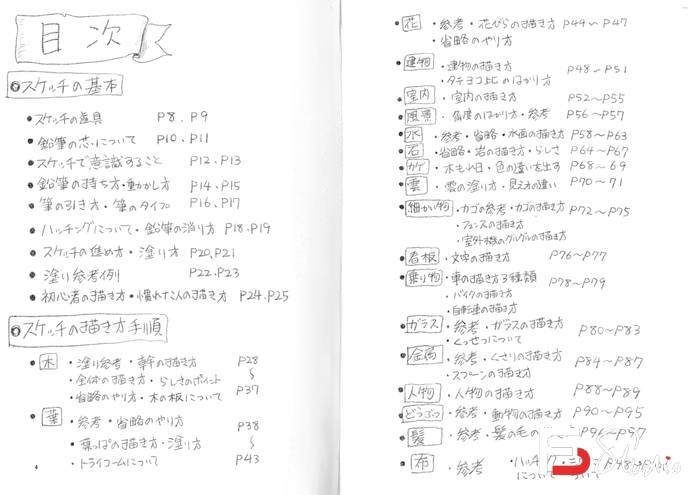 目次
スケッチの基本
・スケッチの道具 P8、P9
・鉛筆の芯について P10、P11
・スケッチで意識すること P12、P13
・鉛筆の持ち方・動かし方 P14、P15
・筆の引き方・筆のタイプ P16、P17
・ハッチングについて・鉛筆の消り方 P18、P19
・スケッチの進め方・塗り方 P20、P21
・塗り参考例 P22、P23
・初心者の描き方・慣れた人の描き方 P24、P25
スケッチの描き方手順
・木 ・塗り参考・幹の描き方 P28
・全体の描き方・らしさのポイント 〜
・省略のやり方・木の板について P37
・葉 ・参考・省略のやり方 P38
・葉っぱの描き方・塗り方 〜
・トライコームについて P43
4
・花 ・参考・花びらの描き方 P44〜P47
・省略のやり方
・建物 ・建物の描き方 P48〜P51
・タテヨコ比のはかり方
・室内 ・室内の描き方 P52〜P55
・風景 ・角度のはかり方・参考 P56〜P57
・水 ・参考・省略・水面の描き方 P58〜P63
・石 ・省略・岩の描き方・らしさ P64〜P67
・カゲ ・木もれ日・色の違いを出す P68〜69
・雲 ・雲の塗り方・見え方の違い P70〜71
・細かい物 ・カゴの参考・カゴの描き方 P72〜P75
・フェンスの描き方
・室外機のグルグルの描き方
・看板 ・文字の描き方 P76〜P77
・乗り物 ・車の描き方3種類 P78〜P79
・バイクの描き方
・自転車の描き方
・ガラス ・参考・ガラスの描き方 P80〜P83
・くっせつについて
・金属 ・参考・くさりの描き方 P84〜P87
・スプーンの描き方
・人物 ・人物の描き方 P88〜P89
・どうぶつ ・参考・動物の描き方 P90〜P95
・髪 ・参考・髪の毛の P96〜P97
・布 ・参考 ・ハッチング
について
Studio